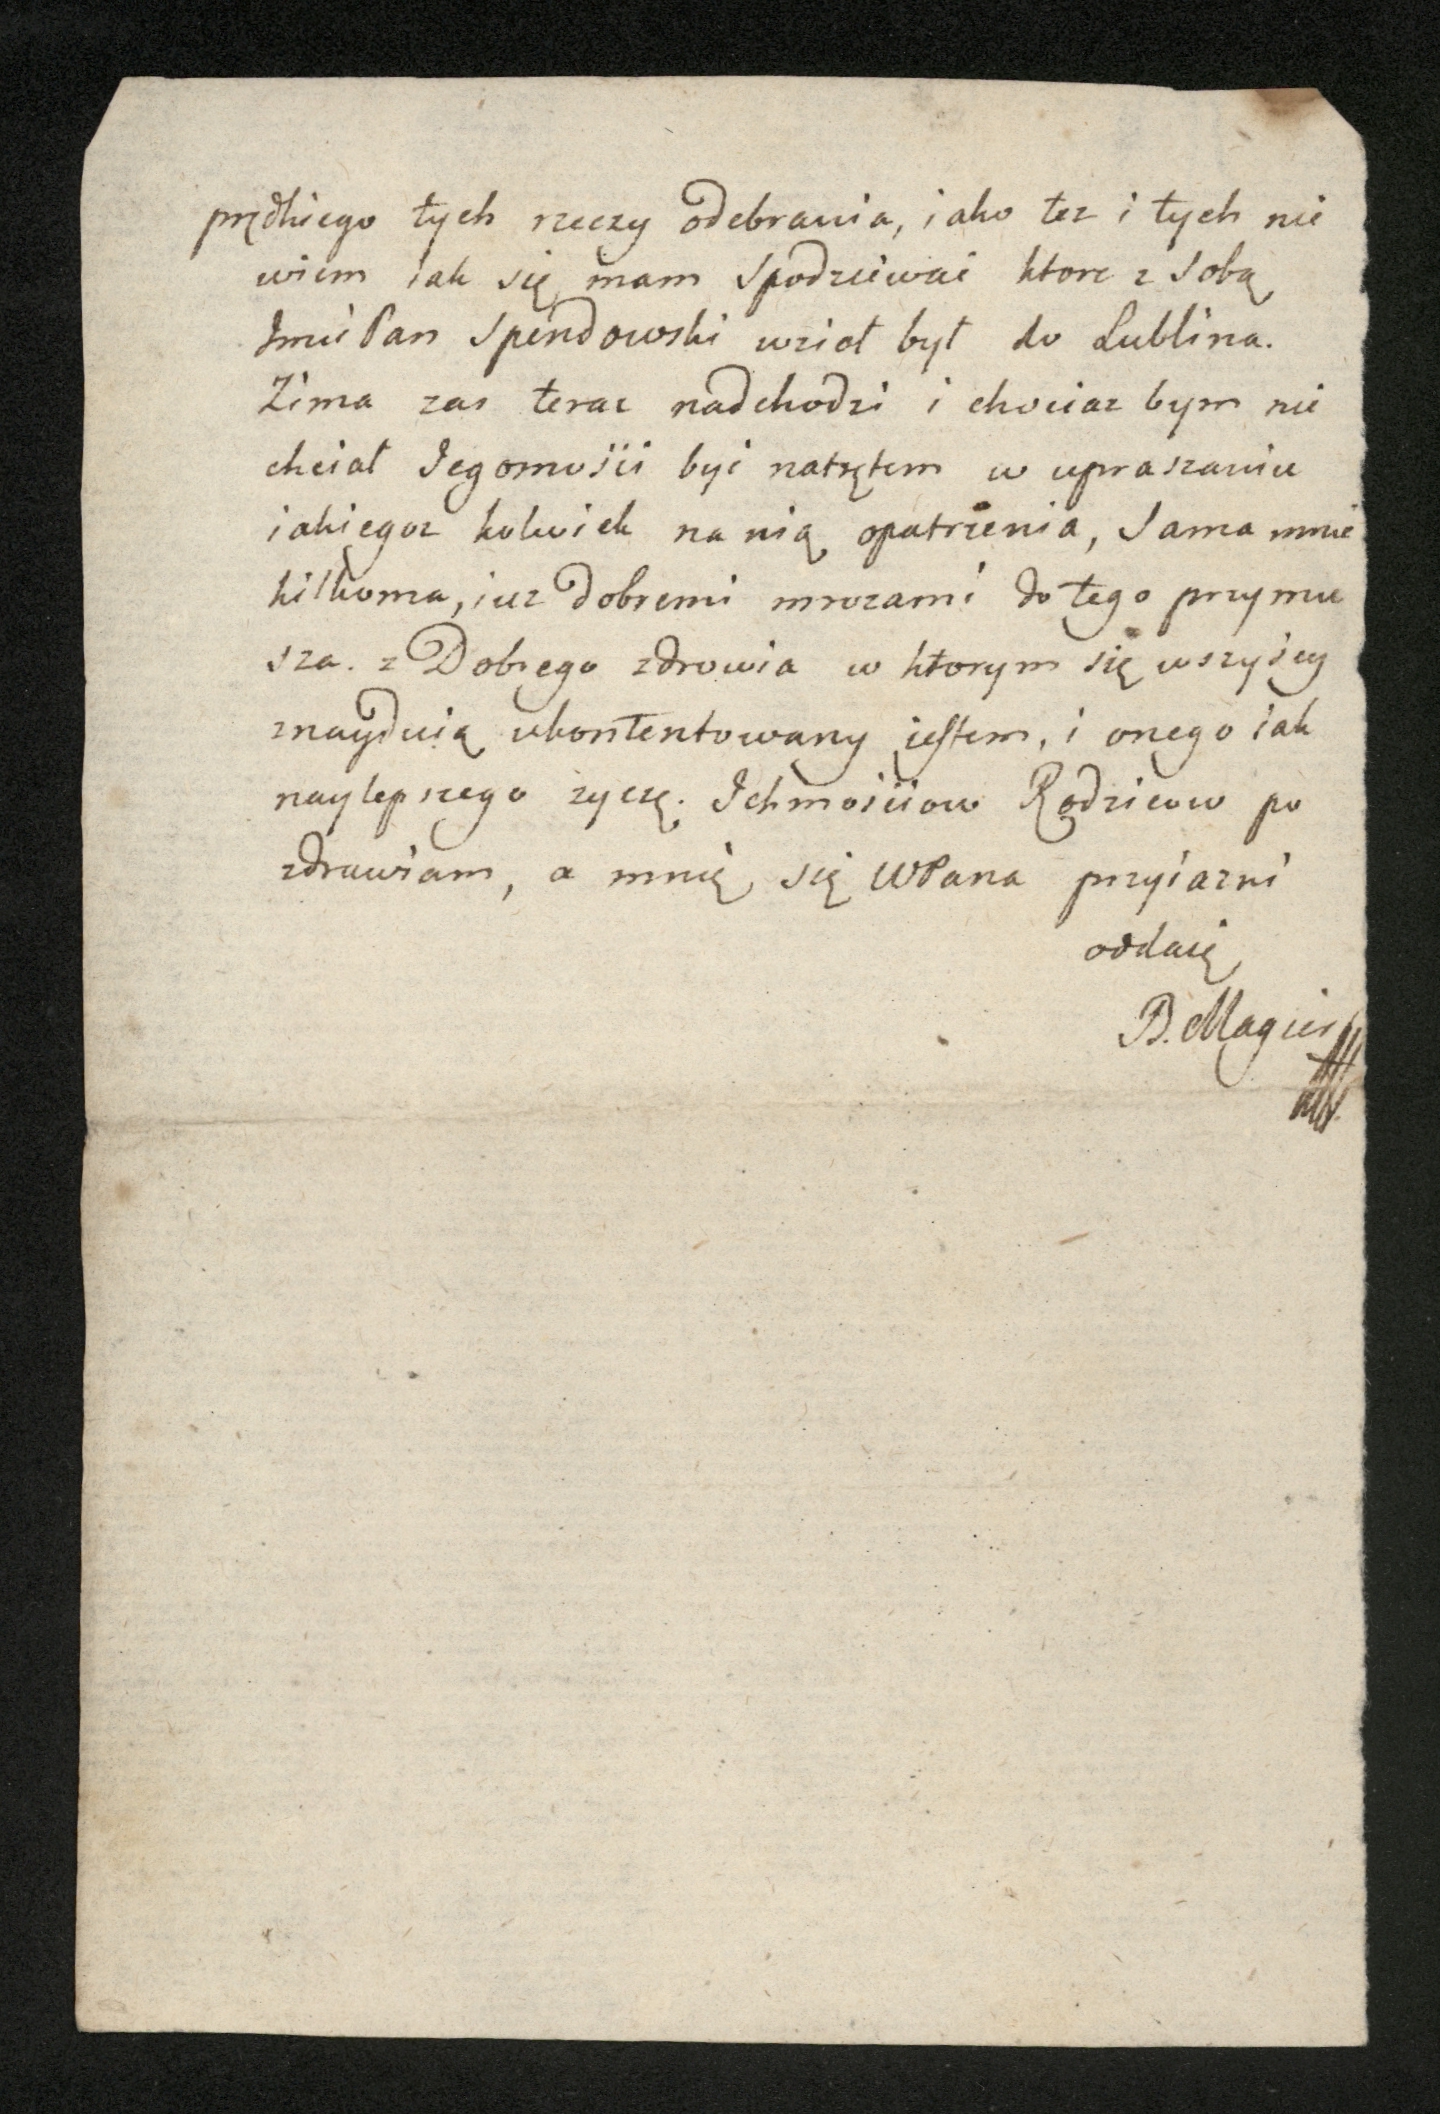 prędkiego tych rzeczy odebrania, iako tez i tych nie
wiem iak się mam spodziewać ktore z sobą
Jmć Pan Spendowski wzioł był do Lublina.
Zima zas teraz nadchodzi i chociaz bym nie
chciał Jegomości być natrętem w upraszaniu
iakiegoz kolwiek na nią opatrzenia, sama mnie
kilkoma, iuz dobremi mrozami do tego przymu
sza. z Dobrego zdrowia w ktorym się wszyscy
znayduią ukontentowany iestem, i onego iak
naylepszego zyczę. Ichmościow Rodzicow po
zdrawiam, a mnię się WPana przyiazni
oddaię
B. Magier